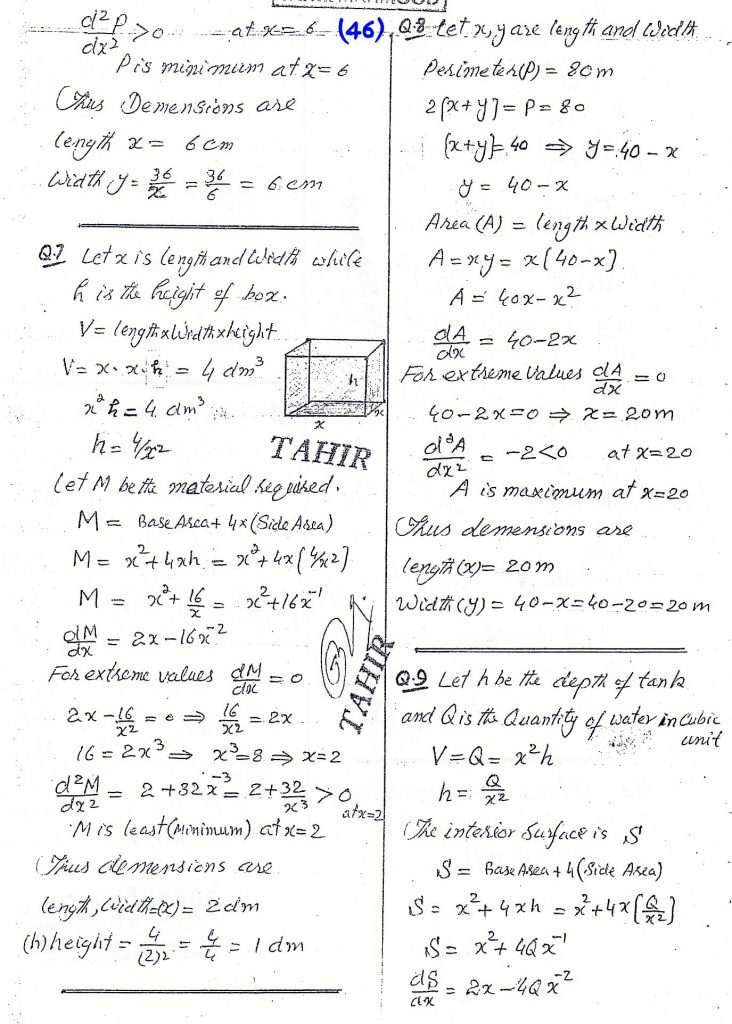 d²P/dx² > 0 at x = 6
P is minimum at x = 6
Thus Demensions are
length x = 6 cm
Width y = 36/x = 36/6 = 6 cm
Q.7 Let x is length and Width while
h is the height of box.
V = length x Width x height
V = x · x · h = 4 dm³
x² h = 4 dm³
h = 4/x²
h
x
x
TAHIR
Let M be the material required.
M = Base Area + 4x (Side Area)
M = x² + 4xh = x² + 4x [4/x²]
M = x² + 16/x = x² + 16x⁻¹
dM/dx = 2x - 16x⁻²
For extreme values dM/dx = 0
2x - 16/x² = 0 ⇒ 16/x² = 2x
16 = 2x³ ⇒ x³ = 8 ⇒ x = 2
d²M/dx² = 2 + 32x⁻³ = 2 + 32/x³ > 0 at x = 2
M is least (Minimum) at x = 2
Thus demensions are
length, Width = (x) = 2 dm
(h) height = 4/(2)² = 4/4 = 1 dm
TAHIR
(46)
Q.8 Let x, y are length and Width
Perimeter (P) = 80 m
2[x + y] = P = 80
[x + y] = 40 ⇒ y = 40 - x
y = 40 - x
Area (A) = length x Width
A = xy = x[40 - x]
A = 40x - x²
dA/dx = 40 - 2x
For extreme Values dA/dx = 0
40 - 2x = 0 ⇒ x = 20 m
d²A/dx² = -2 < 0 at x = 20
A is maximum at x = 20
Thus demensions are
length (x) = 20 m
Width (y) = 40 - x = 40 - 20 = 20 m
Q.9 Let h be the depth of tank
and Q is the Quantity of water in cubic
unit
V = Q = x² h
h = Q/x²
The interior Surface is S
S = Base Area + 4 (Side Area)
S = x² + 4xh = x² + 4x [Q/x²]
S = x² + 4Q x⁻¹
dS/dx = 2x - 4Q x⁻²